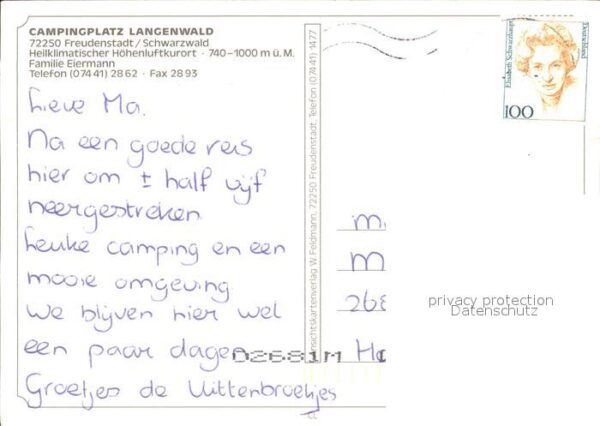 CAMPINGPLATZ LANGENWALD
72250 Freudenstadt/Schwarzwald
Heilklimatischer Höhenluftkurort · 740-1000 m ü. M.
Familie Eiermann
Telefon (07441) 2862 · Fax 2893
Lieve Ma.
Na een goede reis
hier om ± half vijf
neergestreken
Leuke camping en een
mooie omgeving
We blijven hier wel
een paar dagen
Groetjes de Uittenbroekjes
Ansichtskartenverlag W. Feldmann, 72250 Freudenstadt, Telefon (07441) 1477
Elisabeth Schwarzhaupt
Deutschland
100
M
M
268
Ha
02681M
privacy protection
Datenschutz